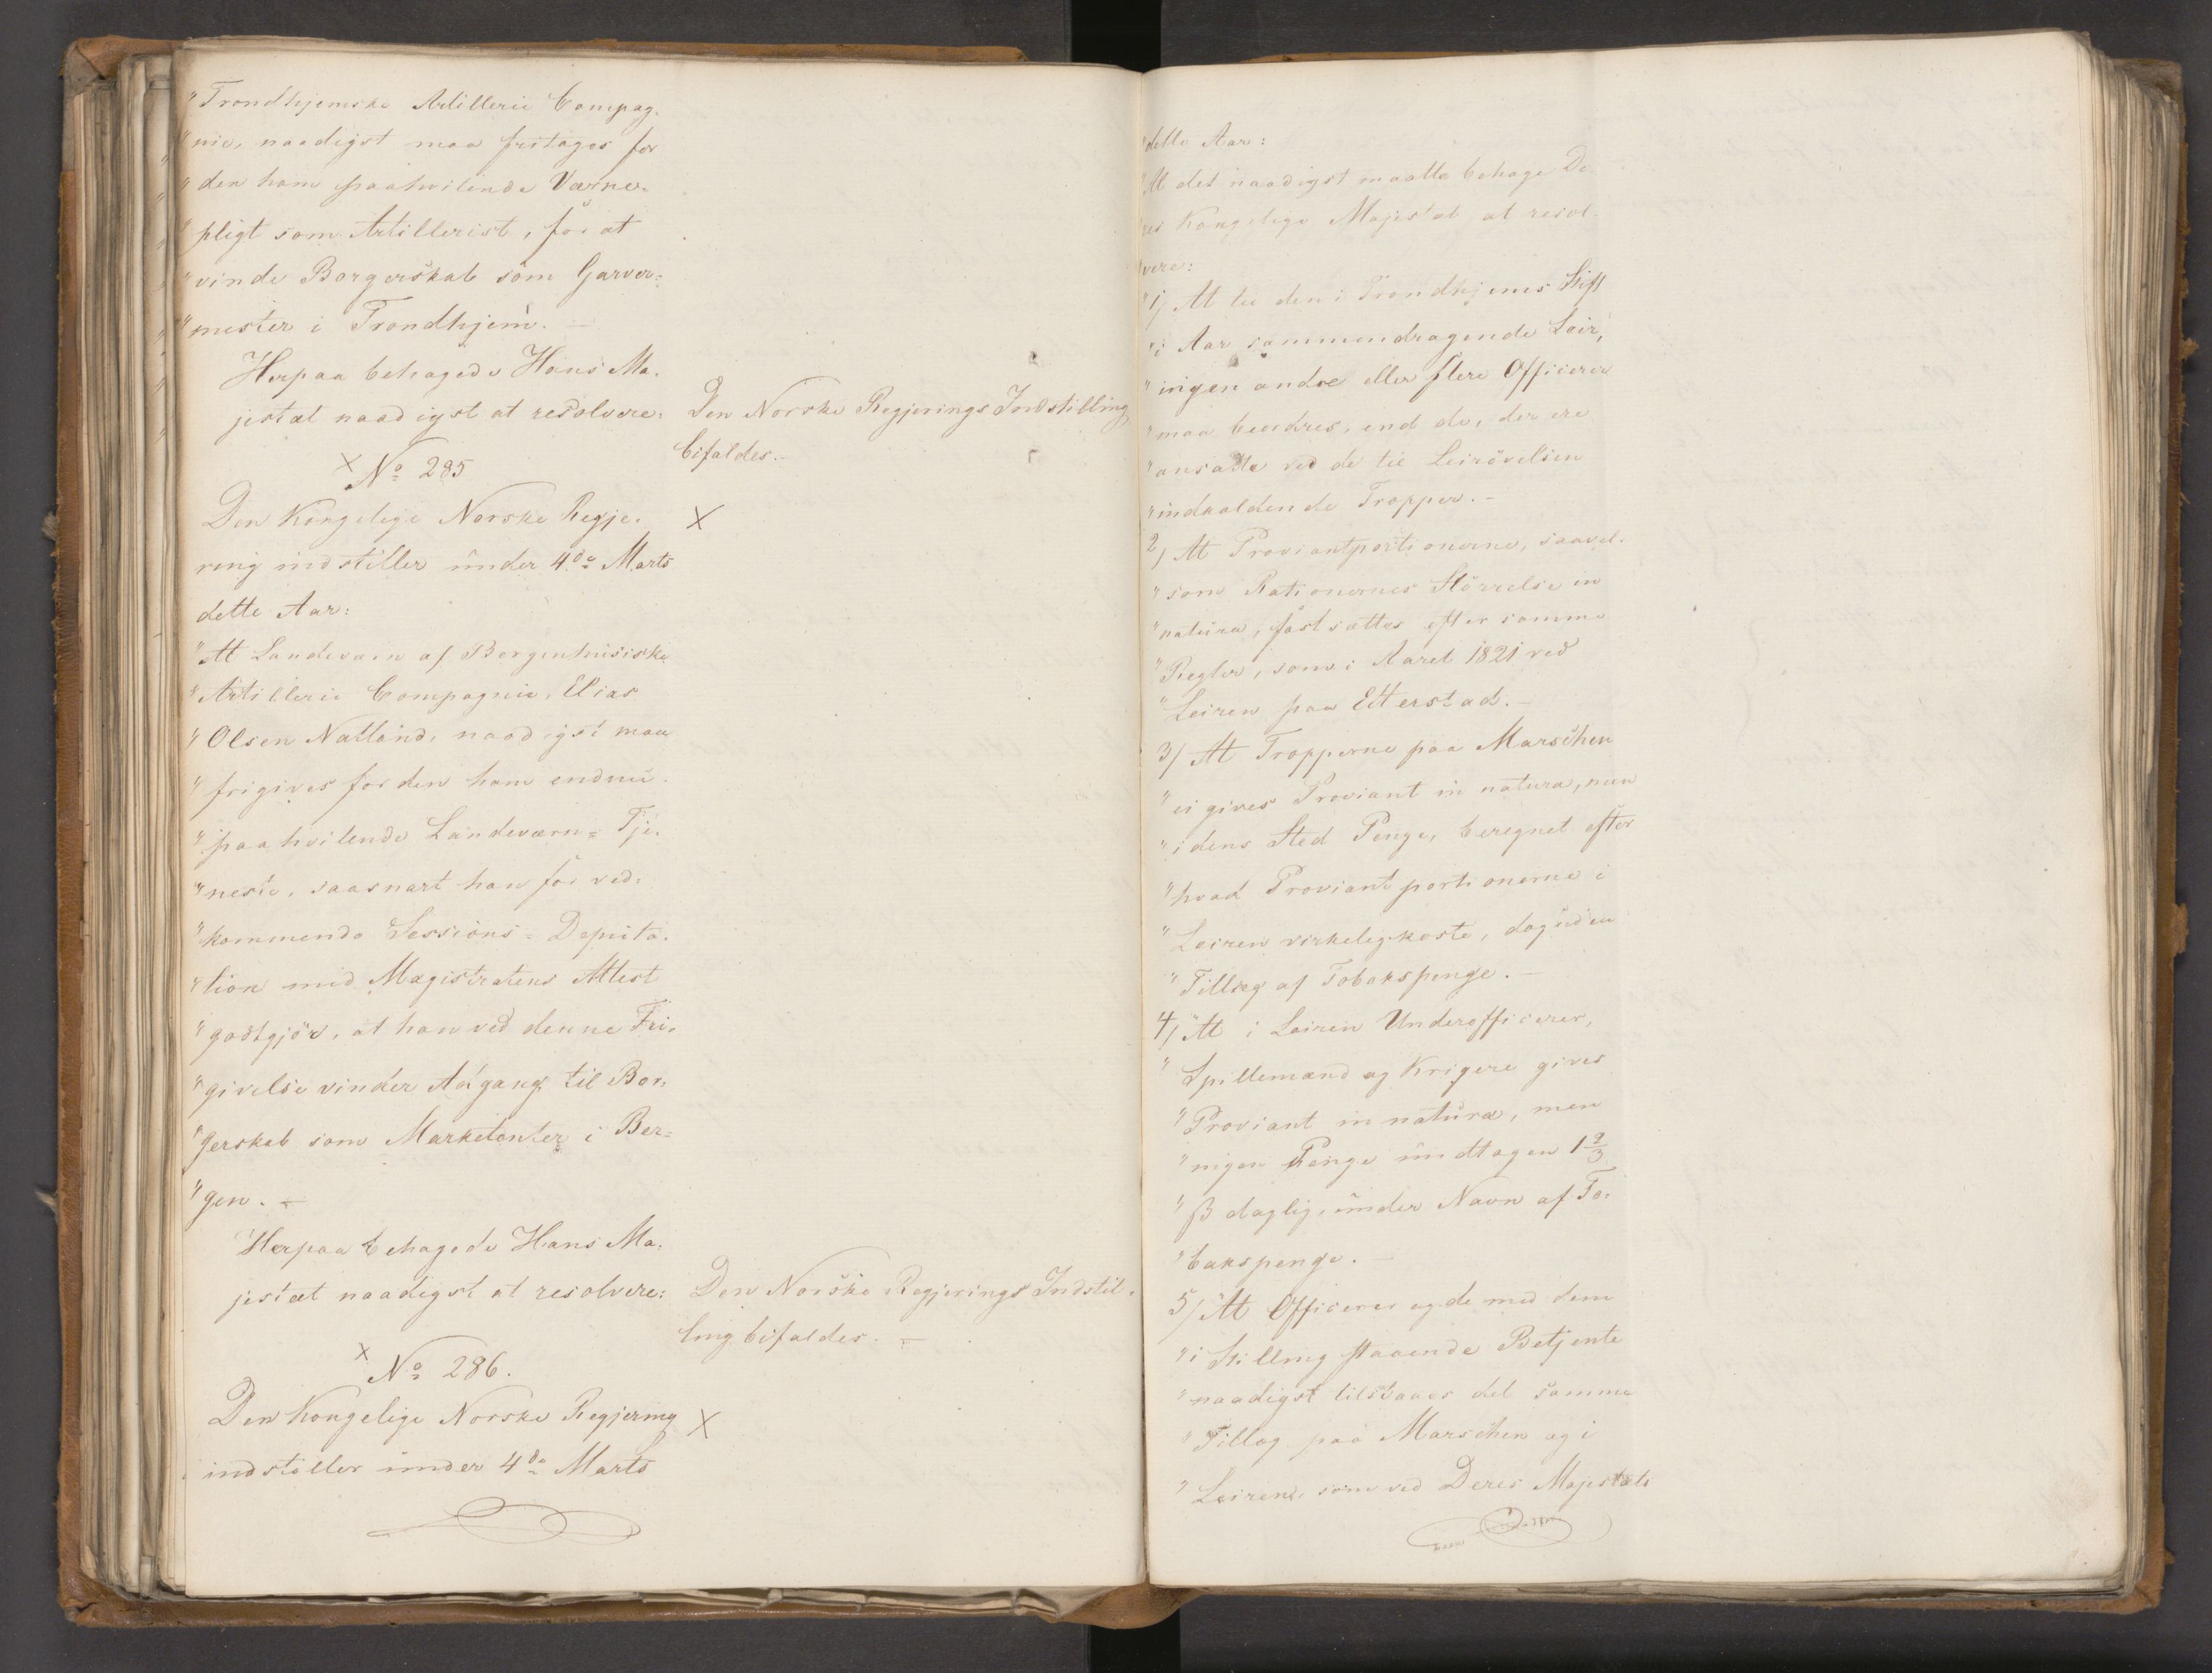 "Trondhjemske Artillerie Compag-
"nie, naadigst maa fritages for
"den ham paahvilende Værne-
"pligt som Artillerist, for at
"vinde Borgerskab som Garver-
"mester i Trondhjem. —
Herpaa behagede Hans Ma-
jestæt naadigst at resolvere:
Den Norske Regjerings Indstilling
bifaldes. —
× No 285
Den Kongelige Norske Regje-
×
ring indstiller under 4de Marts
dette Aar:
"At Landeværn af Bergenhusiske
"Artillerie Compagnie, Elias
"Olsen Natland, naadigst maa
"frigives for den ham endnu
"paahvilende Landeværn-Tje-
"neste, saasnart han for ved-
"kommende Sessions-Deputa-
"tion med Magistratens Attest
"godtgjør, at han ved denne Fri-
"givelse vinder Adgang til Bor-
"gerskab som Marketenter i Ber-
"gen. —
Herpaa behagede Hans Ma-
jestæt naadigst at resolvere:
Den Norske Regjerings Indstil-
ling bifaldes. —
× No 286.
Den Kongelige Norske Regjering
×
indstiller under 4de Marts
"dette Aar:
"At det naadigst maatte behage De-
"res Kongelige Majestæt at resol-
"vere:
"1/ At til den i Trondhjems Stift
"i Aar sammendragende Leir,
"ingen andre eller flere Officerer
"maa beordres, end de, der ere
"ansatte ved de til Leirøvelsen
"indkaldende Tropper. —
2/ At Proviantportionerne, saavel-
"som Rationernes Størrelse in
"natura, fastsættes efter samme
"Regler, som i Aaret 1821 ved
"Leiren paa Etterstad. —
3/ At Tropperne paa Marschen
"ei gives Proviant in natura, men
"i dens Sted Penge, beregnet efter
"hvad Proviantportionerne i
"Leiren virkelig koste, dog uden
"Tillæg af Tobakspenge. —
4/ At i Leiren Underofficerer,
"Spillemænd og Krigere gives
"Proviant in natura, men
"ingen Penge undtagen 1 2/3
"ß daglig, under Navn af To-
"bakspenge. —
5/ At Officerer og de med dem
"i Stilling staaende Betjente
"naadigst tilstaaes det samme
"Tillæg paa Marschen og i
"Leiren, som ved Deres Majestæts